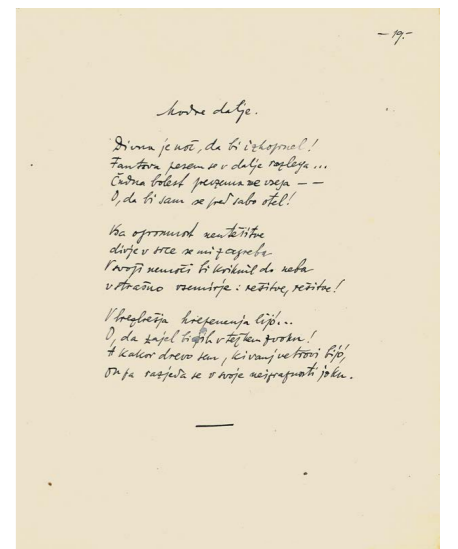 – 19. –
Modre dalje.
Divna je noč, da bi izkoprnel!
Fantova pesem se v dalje razlega...
Čudna bolest prevzema me vsega — —
O, da bi sam se pred sabo otel!
Vsa ogromnost neutešitve
divje v srce se mi zagreba
V svoji nemoči bi kriknil do neba
v strašno vsemirje: rešitve, rešitve!
V brezbrežja hrepenenja lijó...
O, da zajel bi jih v tej tem zvoku!
A kakor drevo sem, ki vanj vetrovi bijó,
pa razjeda se v svoje joku.